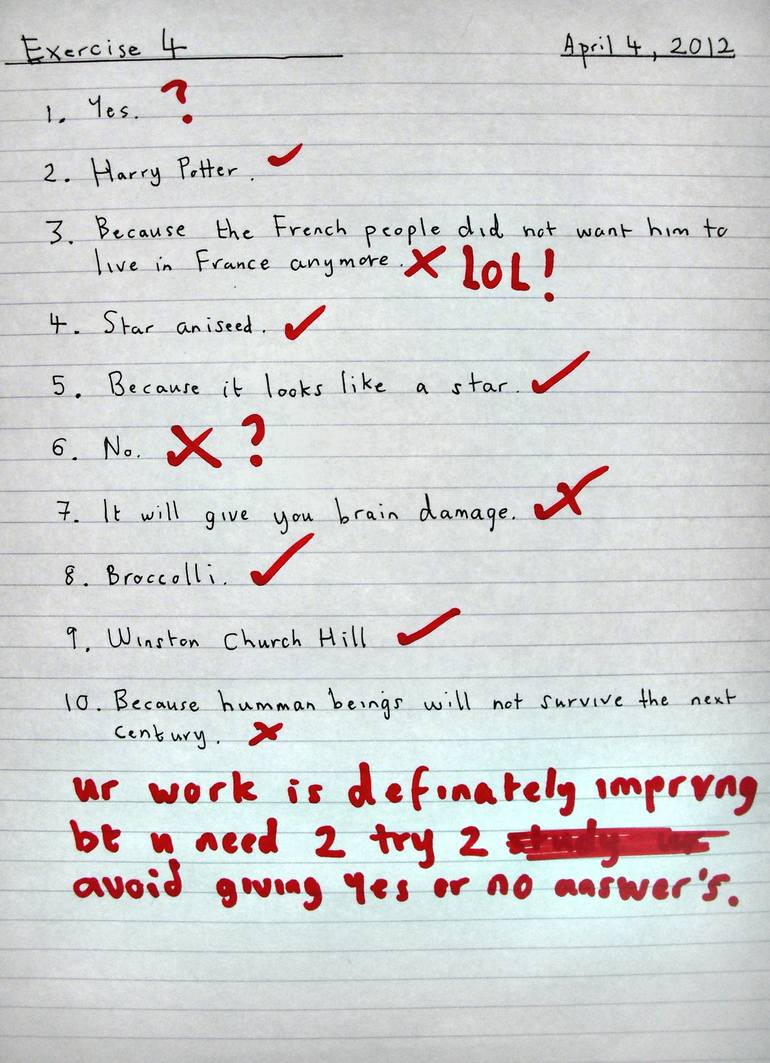 Exercise 4 April 4, 2012
1. Yes. ?
2. Harry Potter. ✓
3. Because the French people did not want him to
live in France anymore. ✗ LOL!
4. Star aniseed. ✓
5. Because it looks like a star. ✓
6. No. ✗ ?
7. It will give you brain damage. ✗
8. Broccolli. ✓
9. Winston Church Hill ✓
10. Because humman beings will not survive the next
century. ✗
ur work is definately imprvng
bt u need 2 try 2
avoid giving yes or no answer's.